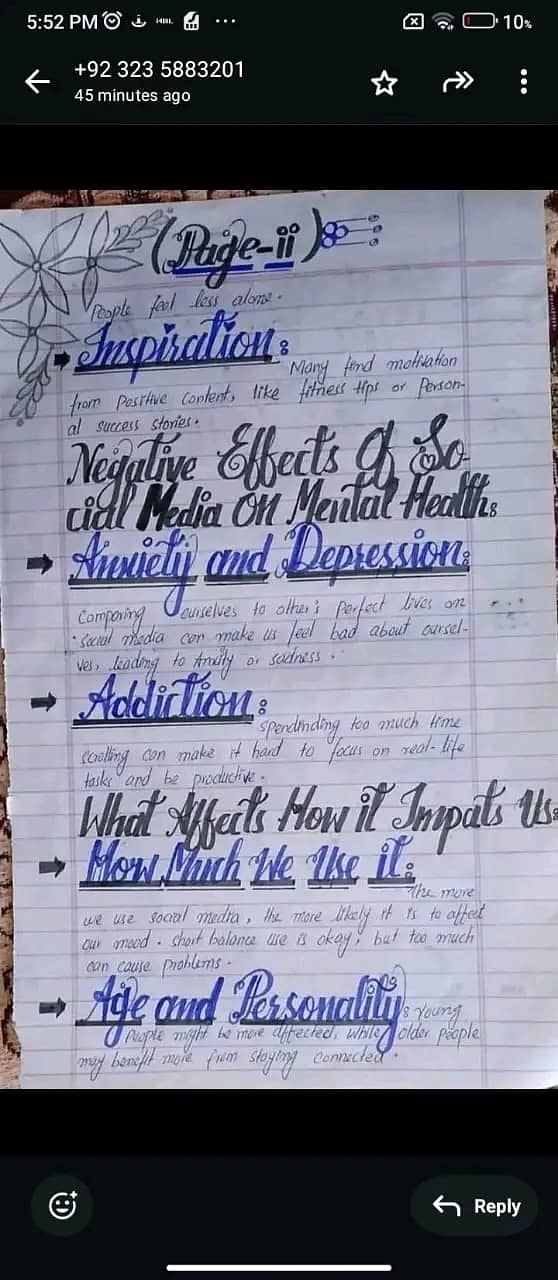 5:52 PM
10%
+92 323 5883201
45 minutes ago
(Page-ii)
People feel less alone.
Inspiration:
Many find motivation
from Positive Content, like fitness tips or Person-
al success stories.
Negative Effects Of So-
cial Media On Mental Health:
Anxiety and Depression:
Comparing ourselves to other's perfect lives on
social media can make us feel bad about oursel-
ves, leading to Anxity or sadness.
Addiction:
spendinding too much time
scrolling can make it hard to focus on real-life
tasks and be productive.
What Affects How it Impats Us:
How Much We Use it:
The more
we use social media, the more likely it is to affect
our mood. short balance use is okay, but too much
can cause problems.
Age and Personality:
Young
People might be more affected, while older people
may benefit more from staying connected.
Reply